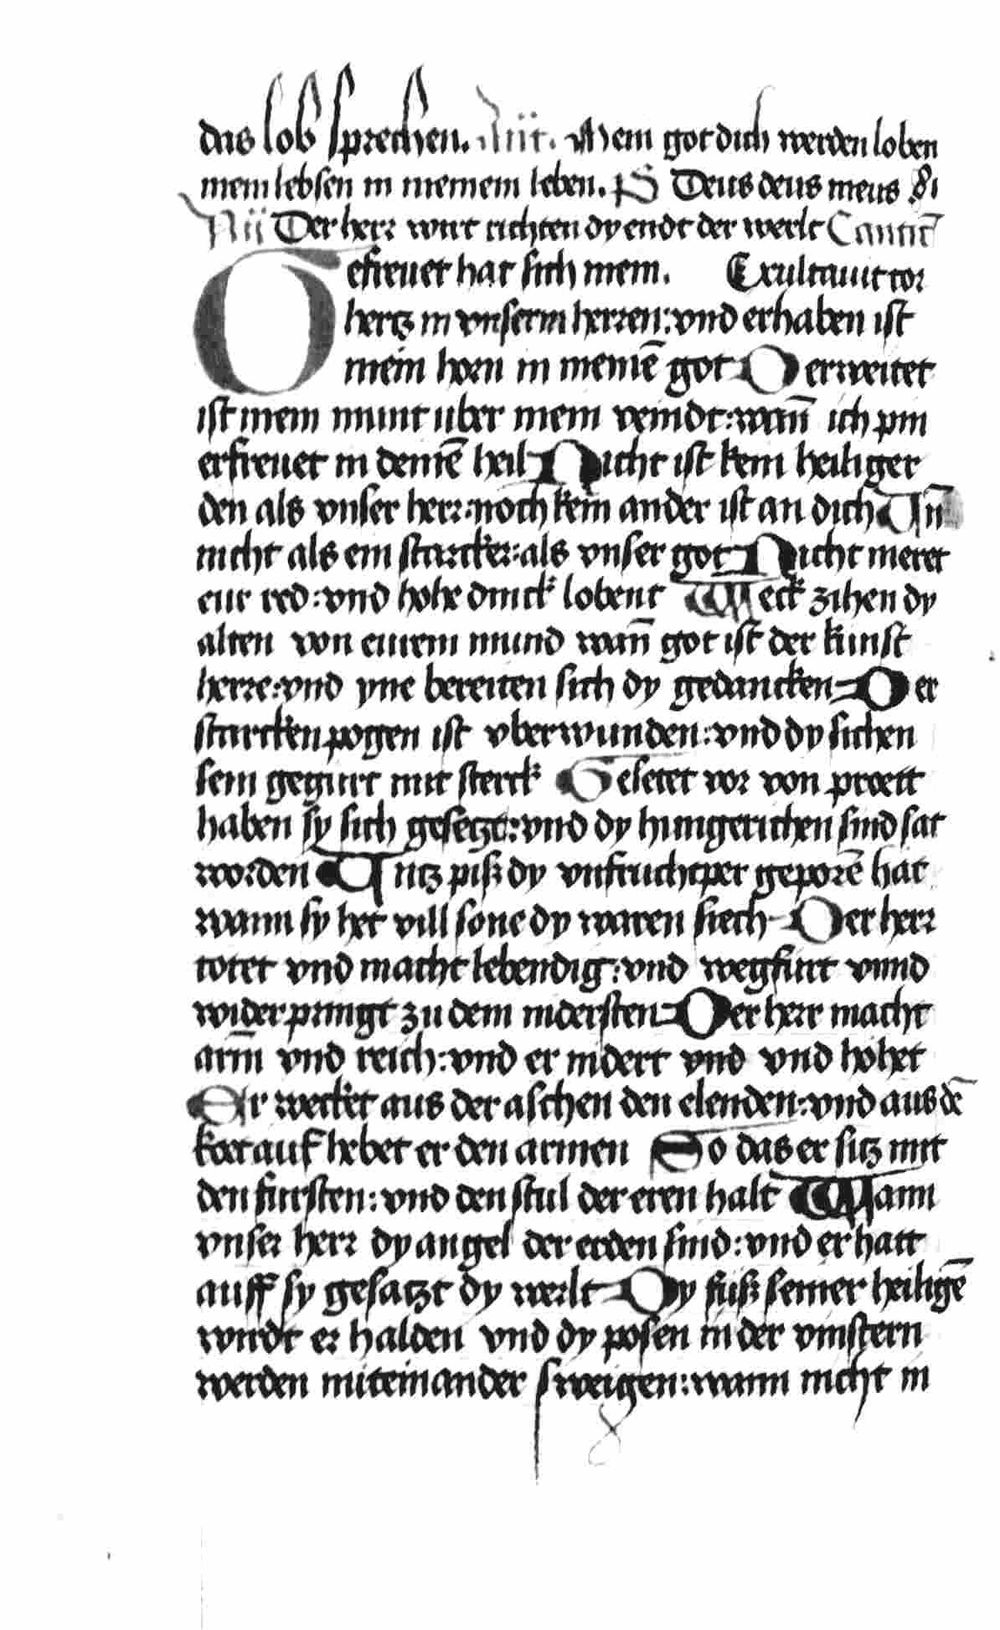 das lob sprechen. Ant. Mein got dich werden loben
mein lebsen in meinem leben. PS Deus deus meus
An Der herr wirt richten dy endt der werlt Cantic̄
Gefreuet hat sich mein. Exultauit cor
hertz in vnserm herren: vnd erhaben ist
mein horn in meinē got Derweitet
ist mein munt uber mein veindt: wan̄ ich pin
erfreuet in deinē heil Nicht ist kein heiliger
den als vnser herr: noch kein ander ist an dich Un̄
nicht als ein starcker: als vnser got Nicht meret
eur red: vnd hohe dinck lobent Weck zihen dy
alten von eurem mund wan̄ got ist der kunst
herre: vnd yne bereiten sich dy gedancken Der
starcken pogen ist vberwunden: vnd dy sichen
sein gegurt mit sterck Gesetet vor von proett
haben sy sich gesetzt: vnd dy hungerichen sind sat
worden Untz pisz dy vnfruchtper geporē hat
wann sy het vill sone dy waren siech Der herr
totet vnd macht lebendig: vnd wegfurt vnnd
widerpringt zu dem nidersten Der herr macht
arm̄ vnd reich: vnd er nidert vnd vnd hohet
Er wecket aus der aschen den elenden: vnd aus dē
kot auf hebet er den armen So das er sitz mit
den fursten: vnd den stul der eren halt Wann
vnser herr dy angel der erden sind: vnd er hatt
auff sy gesatzt dy werlt Dy fusz seiner heiligē
wirdt er halden vnd dy posen in der vinstern
werden miteinander sweigen: wann nicht in